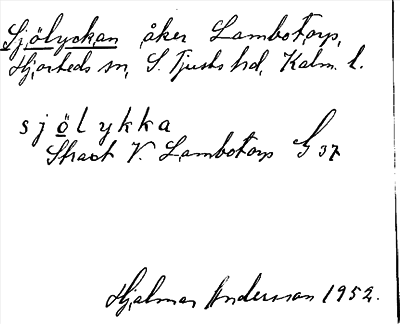 Sjölyckan åker Lambotorp,
Hjorteds sn, S. Tjusts hd, Kalm. l.
sjölykka
Straxt V. Lambotorp G 37
Hjalmar Andersson 1952.